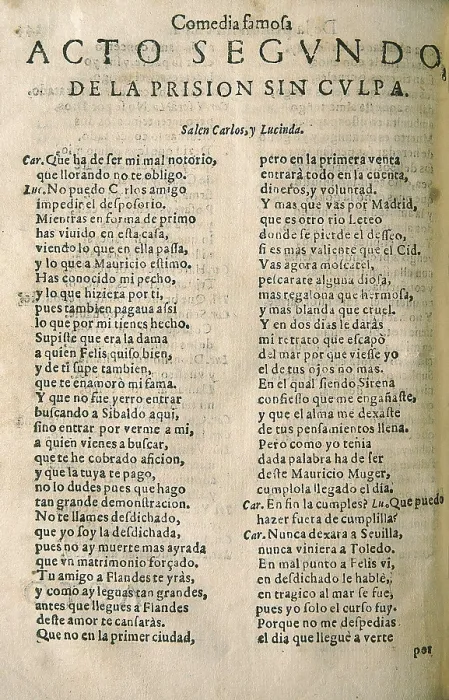 Comedia famosa
ACTO SEGVNDO,
DE LA PRISION SIN CVLPA.
Salen Carlos, y Lucinda.
Car. Que ha de ser mi mal notorio,
que llorando no te obligo.
Luc. No puedo C rlos amigo
impedir el desposorio.
Mientras en forma de primo
has viuido en esta casa,
viendo lo que en ella passa,
y lo que a Mauricio estimo.
Has conocido mi pecho,
y lo que hiziera por ti,
pues tambien pagaua assi
lo que por mi tienes hecho.
Supiste que era la dama
a quien Felis quiso bien,
y de ti supe tambien,
que te enamorò mi fama.
Y que no fue yerro entrar
buscando a Sibaldo aqui,
sino entrar por verme a mi,
a quien vienes a buscar,
que te he cobrado aficion,
y que la tuya te pago,
no lo dudes pues que hago
tan grande demonstracion.
No te llames desdichado,
que yo soy la desdichada,
pues no ay muerte mas ayrada
que vn matrimonio forçado.
Tu amigo a Flandes te yràs,
y como ay leguas tan grandes,
antes que llegues a Flandes
deste amor te cansaràs.
Que no en la primer ciudad,
pero en la primera venta
entrarà todo en la cuenta,
dineros, y voluntad.
Y mas que vas por Madrid,
que es otro rio Leteo
donde se pierde el desseo,
si es mas valiente que el Cid.
Vas agora moscatel,
pescarate alguna diosa,
mas regalona que hermosa,
y mas blanda que cruel.
Y en dos dias le daràs
mi retrato que escapò
del mar por que viesse yo
el de tus ojos no mas.
En el qual siendo Sirena
confiesso que me engañaste,
y que el alma me dexaste
de tus pensamientos llena.
Pero como yo tenia
dada palabra ha de ser
deste Mauricio Muger,
cumplola llegado el dia.
Car. En fin la cumples? Lu. Que puedo
hazer fuera de cumplilla?
Car. Nunca dexara a Seuilla,
nunca viniera a Toledo.
En mal punto a Felis vi,
en desdichado le hablè,
en tragico al mar se fue,
pues yo solo el curso fuy.
Porque no me despedias
el dia que lleguè a verte
por